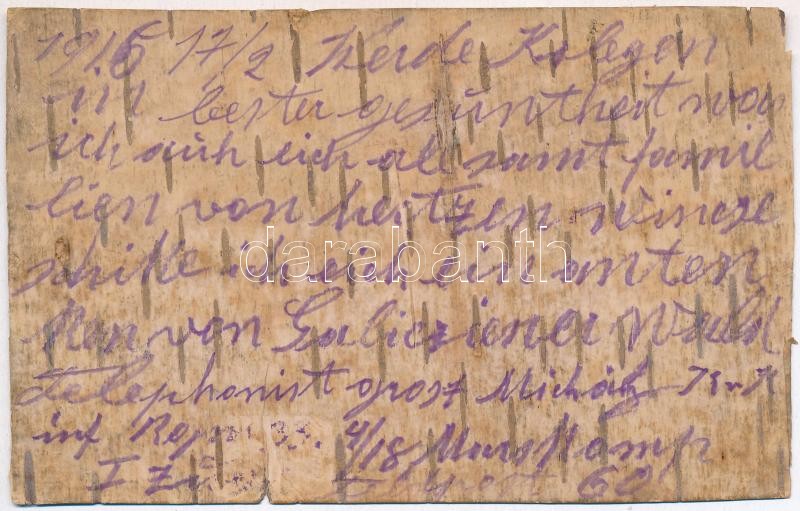 1916 17/2 Werde Kolegen
in bester gesuntheit was
ich auh eich ale samt famil
lien von hertzen wincze
schike ich eich ein anten
ken von Galicziener Wald
Telephonist grosz Michály K.u.K
inf Reg 33. 4/18 Mars Komp
I Zug 60
darabanth